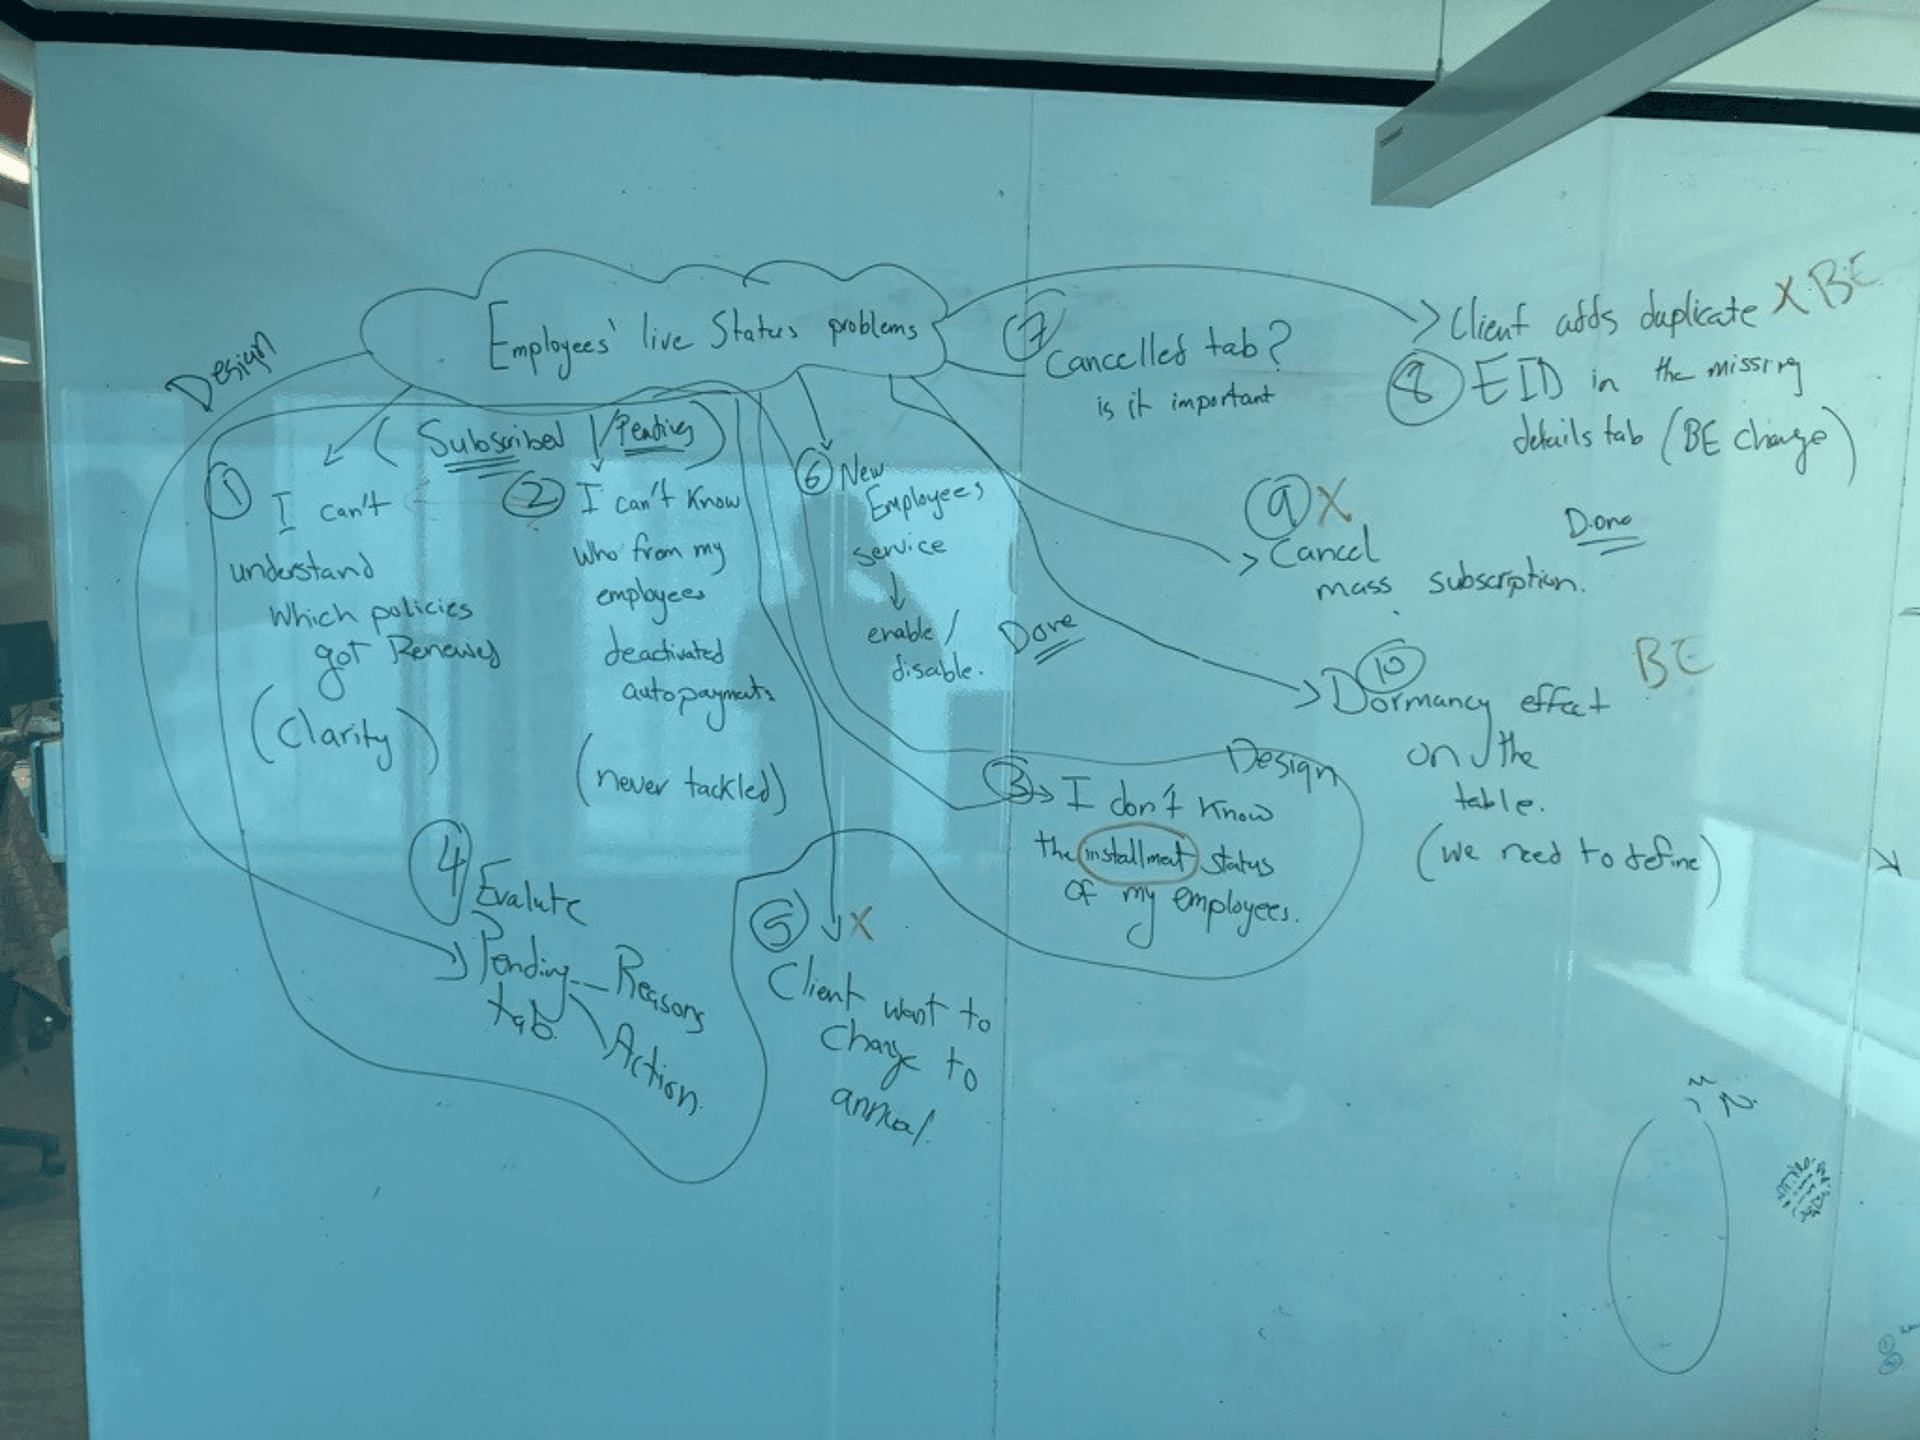 Employees' live Status problems
Design
( Subscribed / Pending )
1
I can't
understand
which policies
got Renewed
(Clarity)
2 I can't know
who from my
employees
deactivated
autopayments
(never tackled)
Design
3 I don't know
the installment status
of my employees.
4
Evalute
Pending
tab
Reasons
Action
5 X
Client want to
change to
annual
6 New
Employees
service
enable/
disable.
Done
7
Cancelled tab?
is it important
Client adds duplicate X BE
8 EID in the missing
details tab (BE change)
9 X
Cancel
mass subscription.
Done
10 BE
Dormancy effect
on the
table.
(we need to define)